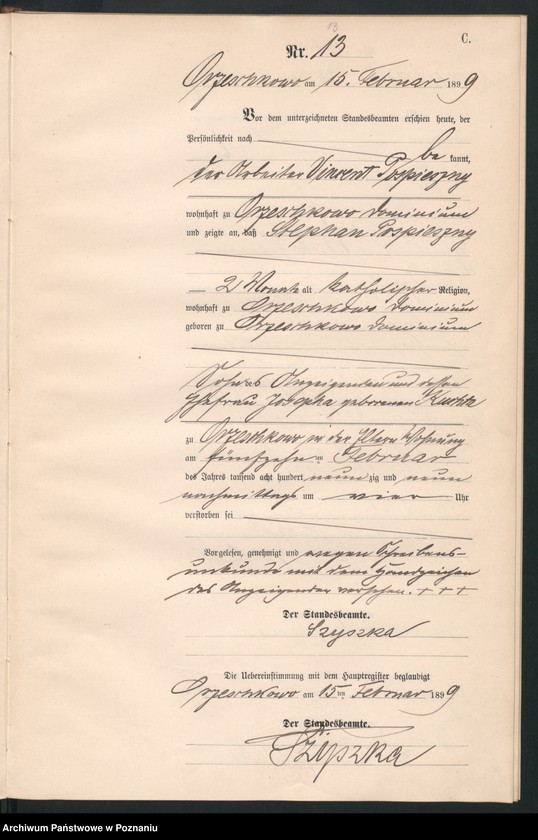 13
C.
Nr. 13
Orzeschkowo am 15. Februar 1899
Vor dem unterzeichneten Standesbeamten erschien heute, der
Persönlichkeit nach
be kannt,
der Arbeiter Vincent Pospieszny
wohnhaft zu Orzeschkowo Dominium
und zeigte an, daß Stephan Pospieszny
2 Monate alt katholischer Religion,
wohnhaft zu Orzeschkowo Dominium
geboren zu Orzeschkowo Dominium
Sohn des Anzeigenden und dessen
Ehefrau Josepha geborenen
zu Orzeschkowo in der Eltern Wohnung
am fünfzehn ten Februar
des Jahres tausend acht hundert neun zig und neun
nachmittags um vier Uhr
verstorben sei
Vorgelesen, genehmigt und wegen Schreibens-
unkunde mit dem Handzeichen
des Anzeigenden versehen. + + +
Der Standesbeamte.
Szyszka
Die Uebereinstimmung mit dem Hauptregister beglaubigt
Orzeschkowo am 15 ten Februar 1899
Der Standesbeamte.
Szyszka
Archiwum Państwowe w Poznaniu